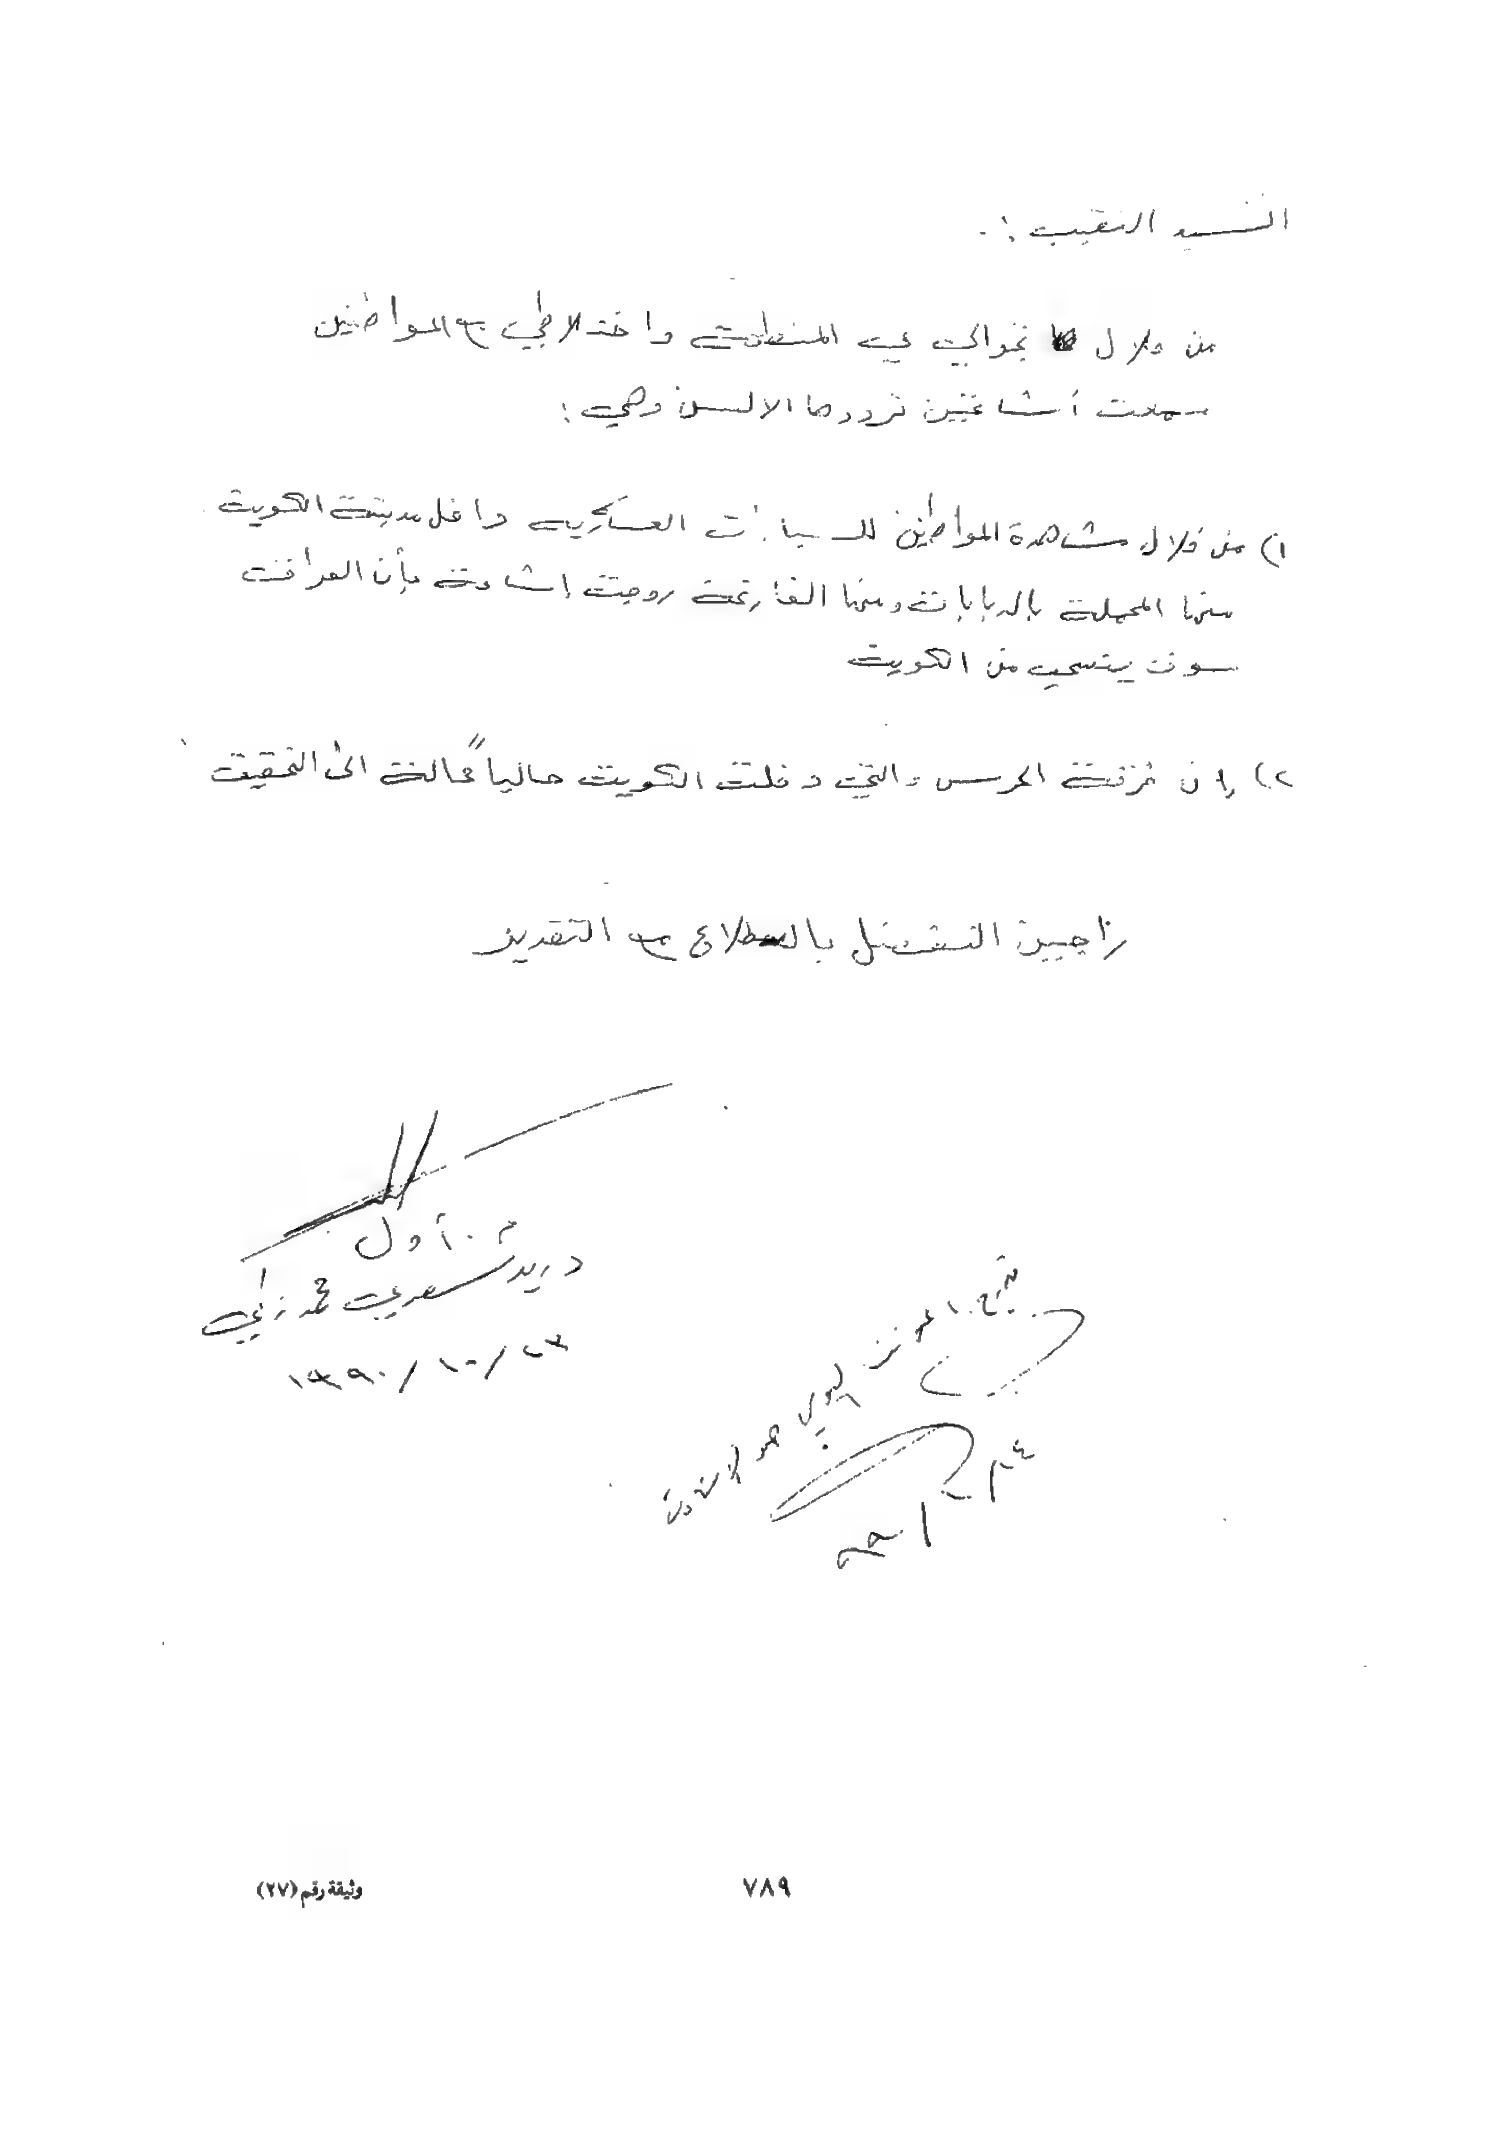 السيد النقيب :.
من خلال تجوالي في المنطقة واختلاطي مع المواطنين
سمعت أشاعتين ترددها الالسن وهي :
١) من خلال مشاهدة المواطنين للسيارات العسكرية داخل مدينة الكويت
منها المحملة بالدبابات ومنها الفارغة روجت إشاعة بأن العراق
سوف ينسحب من الكويت
٢) إن فرقة الحرس والتي دخلت الكويت حالياً محالة الى التحقيق
راجين التفضل بالاطلاع مع التقدير
م. أول
دريد سعدي محمد زكي
١٩٩٠/١٠/٢٣
وثيقة رقم (٢٧)
٧٨٩